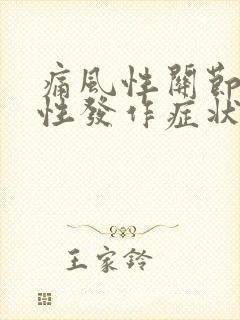 痛風性關節
性發作症狀
王家鈴